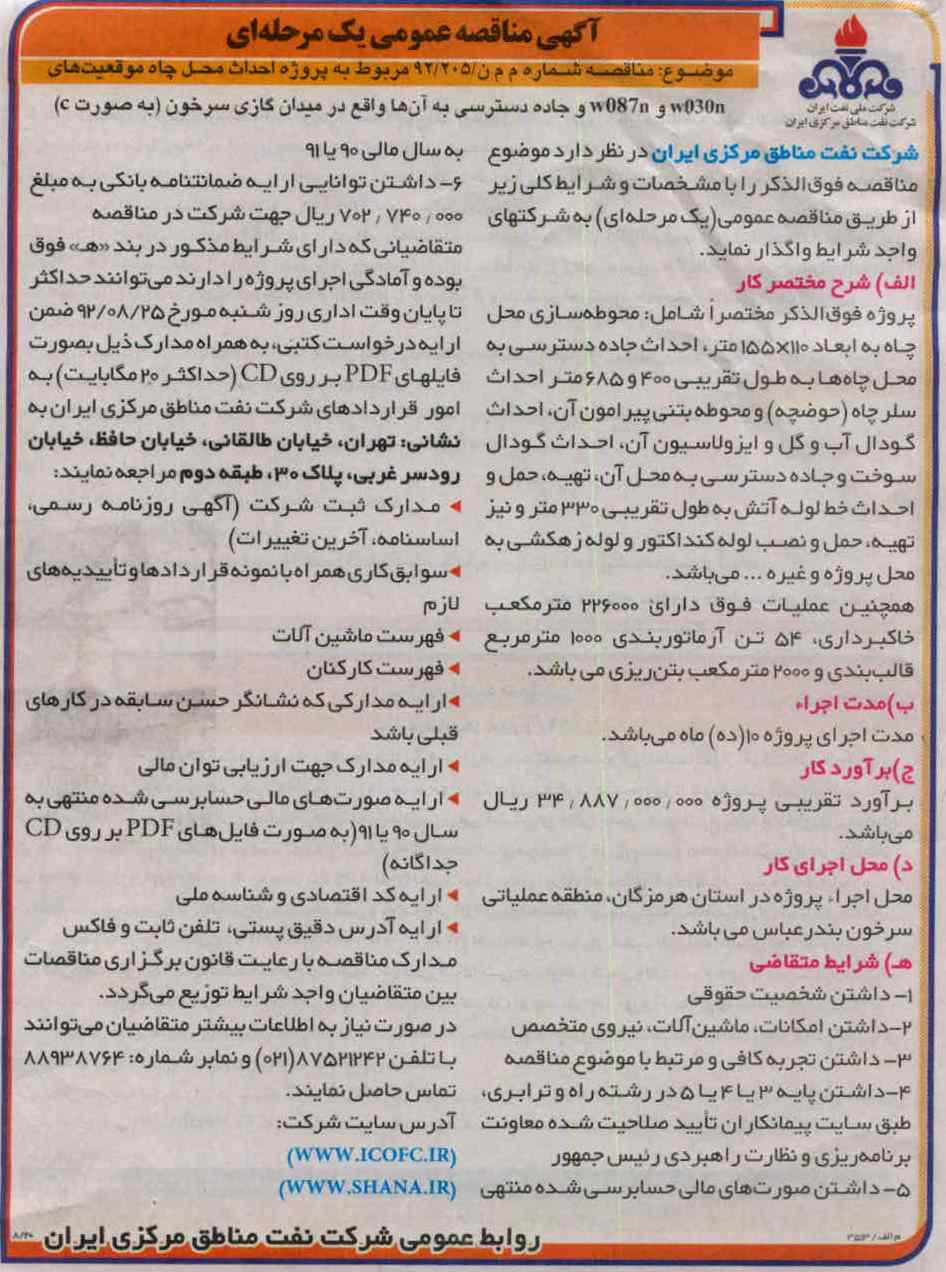 آگهی مناقصه عمومی یک مرحله‌ای
موضوع: مناقصه شماره م م ن/۹۲/۲۰۵ مربوط به پروژه احداث محل چاه موقعیت‌های
w030n و w087n و جاده دسترسی به آن‌ها واقع در میدان گازی سرخون (به صورت c)
شرکت ملی نفت ایران
شرکت نفت مناطق مرکزی ایران
شرکت نفت مناطق مرکزی ایران در نظر دارد موضوع
مناقصه فوق‌الذکر را با مشخصات و شرایط کلی زیر
از طریق مناقصه عمومی(یک مرحله‌ای) به شرکتهای
واجد شرایط واگذار نماید.
الف) شرح مختصر کار
پروژه فوق‌الذکر مختصراً شامل: محوطه‌سازی محل
چاه به ابعاد ۱۱۰×۱۵۵ متر، احداث جاده دسترسی به
محل چاه‌ها به طول تقریبی ۴۰۰ و ۶۸۵ متر احداث
سلر چاه (حوضچه) و محوطه بتنی پیرامون آن، احداث
گودال آب و گل و ایزولاسیون آن، احداث گودال
سوخت و جاده دسترسی به محل آن، تهیه، حمل و
احداث خط لوله آتش به طول تقریبی ۳۳۰ متر و نیز
تهیه، حمل و نصب لوله کنداکتور و لوله زهکشی به
محل پروژه و غیره ... می‌باشد.
همچنین عملیات فوق دارای ۲۲۶۰۰۰ مترمکعب
خاکبرداری، ۵۴ تن آرماتوربندی ۱۰۰۰ مترمربع
قالب‌بندی و ۲۰۰۰ متر مکعب بتن‌ریزی می باشد.
ب)مدت اجراء
مدت اجرای پروژه ۱۰(ده) ماه می‌باشد.
ج)برآورد کار
برآورد تقریبی پروژه ۳۴٫۸۸۷٫۰۰۰٫۰۰۰ ریال
می‌باشد.
د) محل اجرای کار
محل اجراء پروژه در استان هرمزگان، منطقه عملیاتی
سرخون بندرعباس می باشد.
هـ) شرایط متقاضی
۱- داشتن شخصیت حقوقی
۲-داشتن امکانات، ماشین‌آلات، نیروی متخصص
۳- داشتن تجربه کافی و مرتبط با موضوع مناقصه
۴-داشتن پایه ۳ یا ۴ یا ۵ در رشته راه و ترابری،
طبق سایت پیمانکاران تأیید صلاحیت شده معاونت
برنامه‌ریزی و نظارت راهبردی رئیس جمهور
۵- داشتن صورت‌های مالی حسابرسی شده منتهی
به سال مالی ۹۰ یا ۹۱
۶- داشتن توانایی ارایه ضمانتنامه بانکی به مبلغ
۷۰۲٫۷۴۰٫۰۰۰ ریال جهت شرکت در مناقصه
متقاضیانی که دارای شرایط مذکور در بند «هـ» فوق
بوده و آمادگی اجرای پروژه را دارند می‌توانند حداکثر
تا پایان وقت اداری روز شنبه مورخ ۹۲/۰۸/۲۵ ضمن
ارایه درخواست کتبی، به همراه مدارک ذیل بصورت
فایلهای PDF بر روی CD (حداکثر ۲۰ مگابایت) به
امور قراردادهای شرکت نفت مناطق مرکزی ایران به
نشانی: تهران، خیابان طالقانی، خیابان حافظ، خیابان
رودسر غربی، پلاک ۳۰، طبقه دوم مراجعه نمایند:
◄ مدارک ثبت شرکت (آگهی روزنامه رسمی،
اساسنامه، آخرین تغییرات)
◄سوابق کاری همراه با نمونه قراردادها و تأییدیه‌های
لازم
◄ فهرست ماشین آلات
◄ فهرست کارکنان
◄ارایه مدارکی که نشانگر حسن سابقه در کارهای
قبلی باشد
◄ ارایه مدارک جهت ارزیابی توان مالی
◄ ارایه صورت‌های مالی حسابرسی شده منتهی به
سال ۹۰ یا ۹۱(به صورت فایل‌های PDF بر روی CD
جداگانه)
◄ ارایه کد اقتصادی و شناسه ملی
◄ ارایه آدرس دقیق پستی، تلفن ثابت و فاکس
مدارک مناقصه با رعایت قانون برگزاری مناقصات
بین متقاضیان واجد شرایط توزیع می‌گردد.
در صورت نیاز به اطلاعات بیشتر متقاضیان می‌توانند
با تلفن ۸۷۵۲۱۲۴۲(۰۲۱) و نمابر شماره: ۸۸۹۳۸۷۶۴
تماس حاصل نمایند.
آدرس سایت شرکت:
(WWW.ICOFC.IR)
(WWW.SHANA.IR)
م الف/۳۵۱۳
روابط عمومی شرکت نفت مناطق مرکزی ایران
۸/۲۰